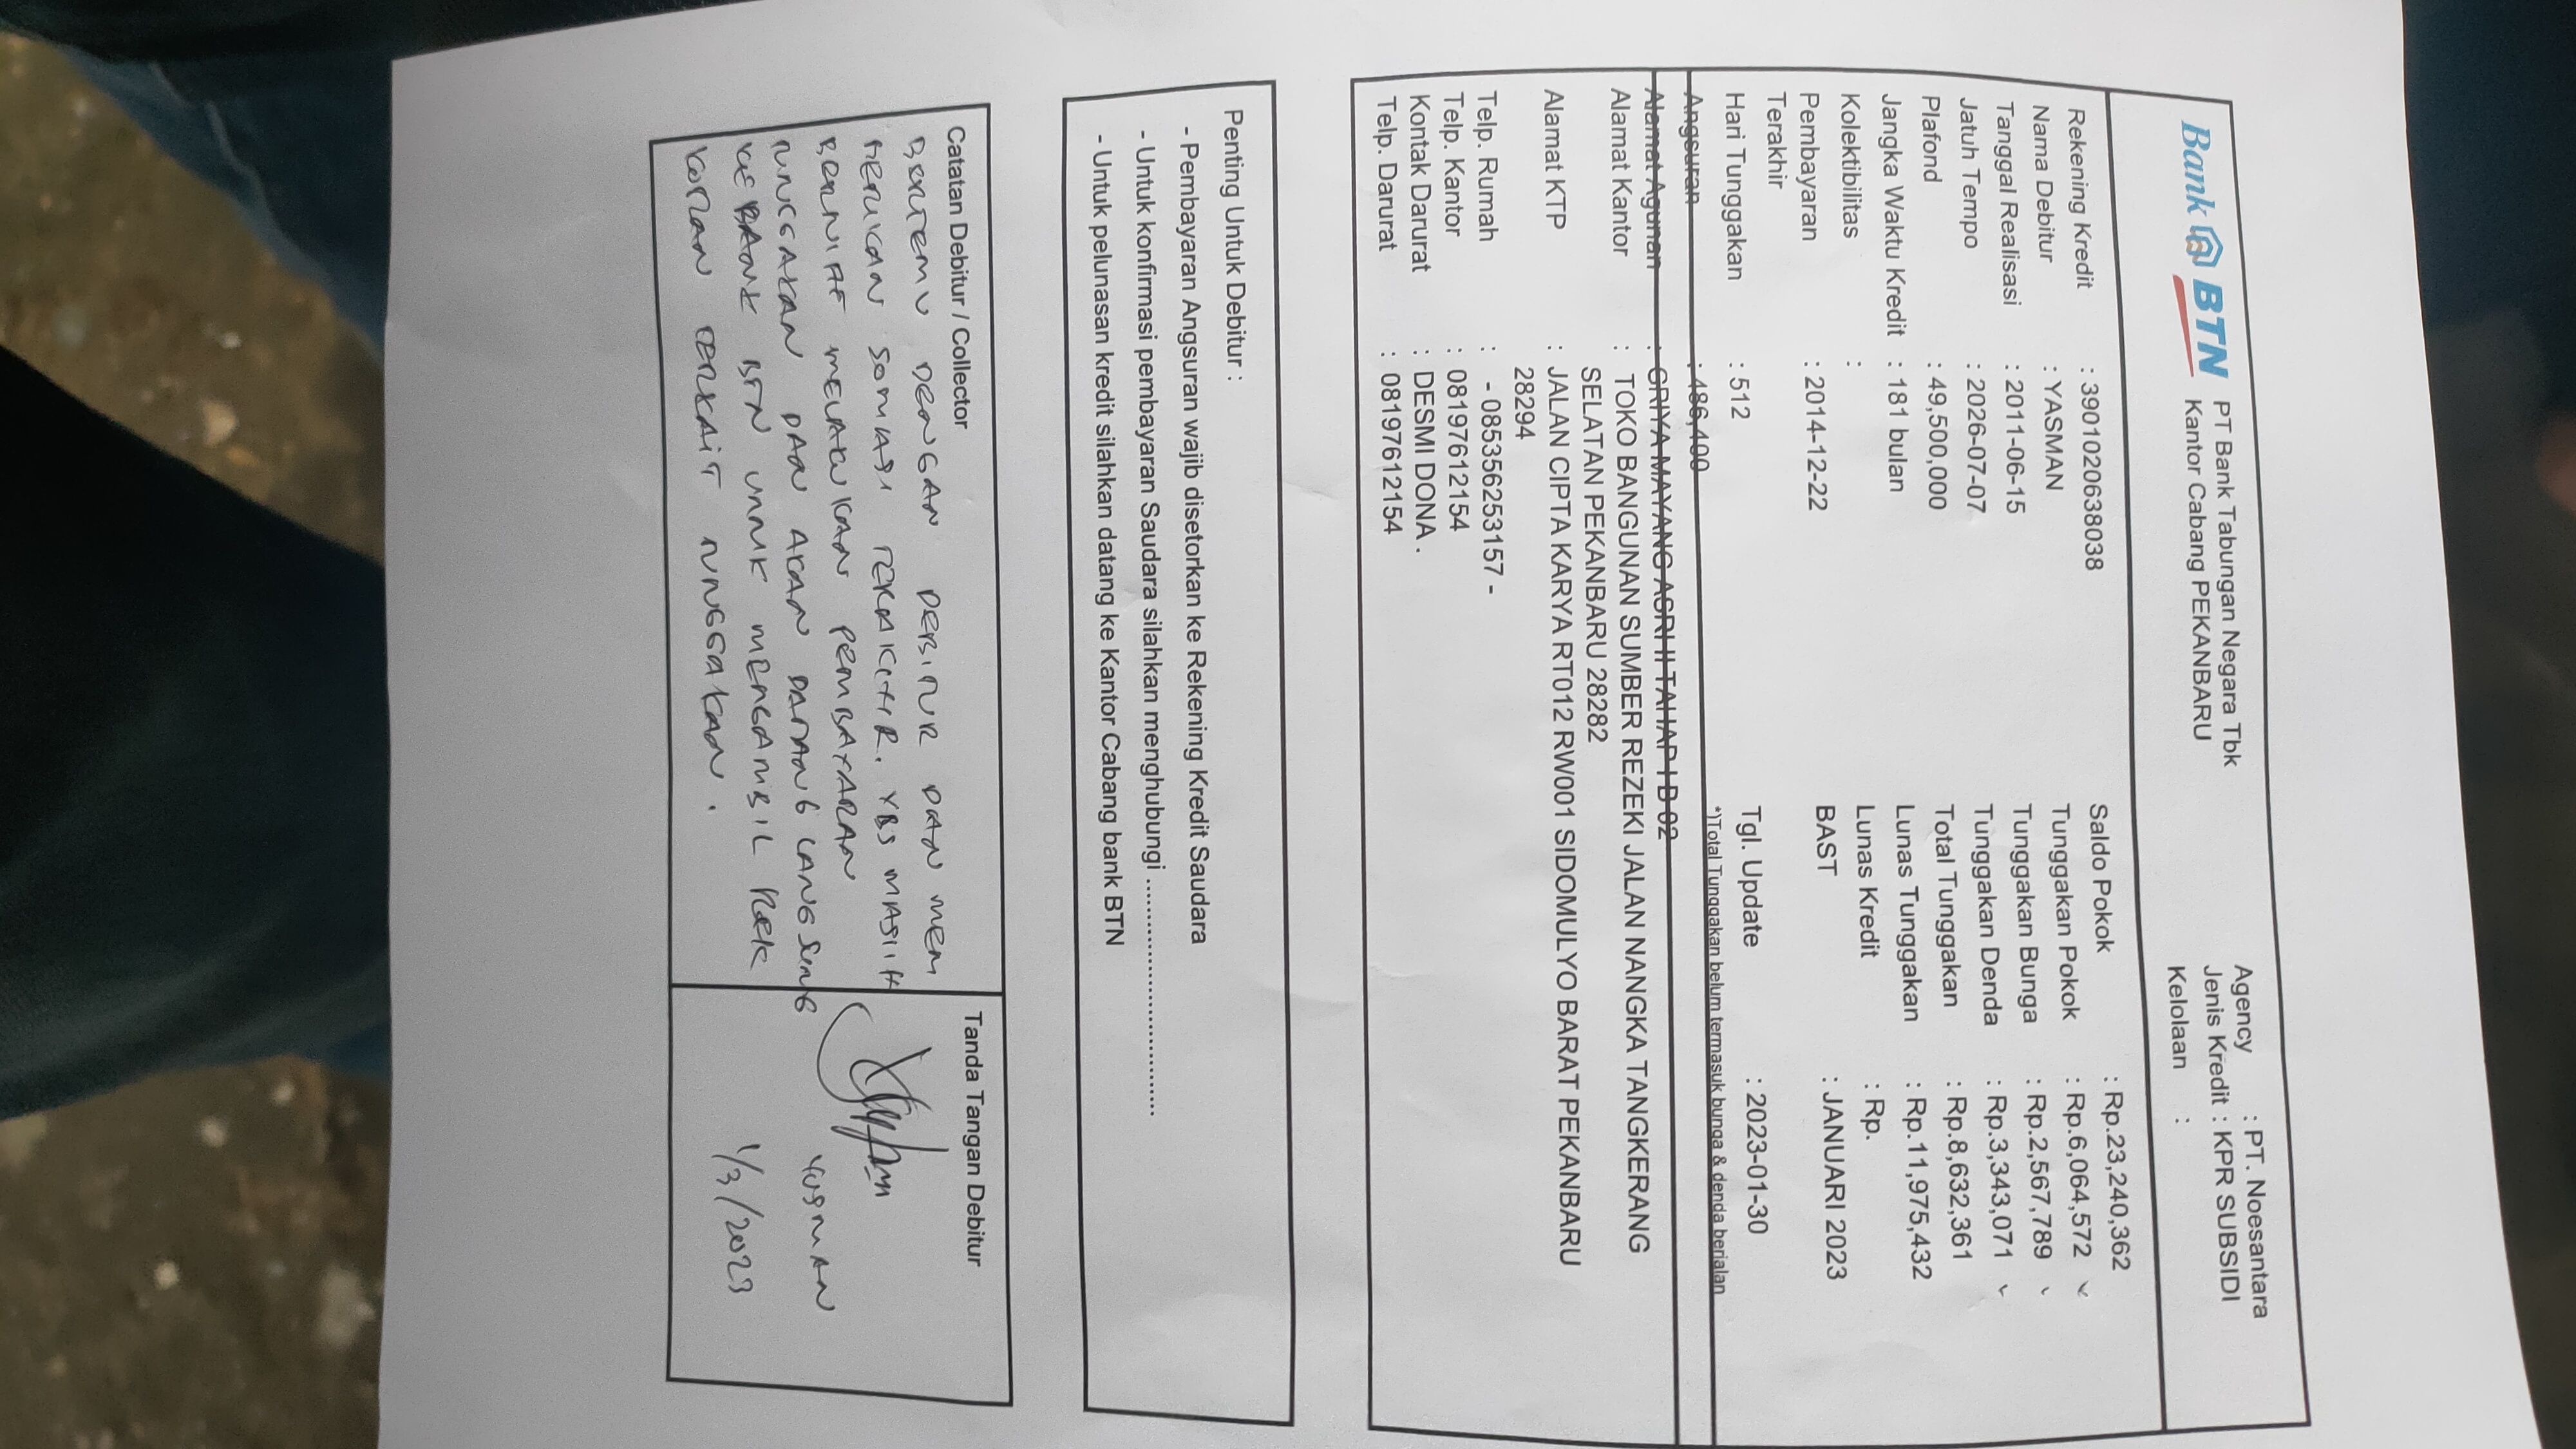 Bank BTN
PT Bank Tabungan Negara Tbk
Kantor Cabang PEKANBARU
Agency : PT. Noesantara
Jenis Kredit : KPR SUBSIDI
Kelolaan :
Rekening Kredit : 3901020638038
Nama Debitur : YASMAN
Tanggal Realisasi : 2011-06-15
Jatuh Tempo : 2026-07-07
Plafond : 49,500,000
Jangka Waktu Kredit : 181 bulan
Kolektibilitas :
Pembayaran : 2014-12-22
Terakhir
Hari Tunggakan : 512
Angsuran : 486,400
Saldo Pokok : Rp.23,240,362
Tunggakan Pokok : Rp.6,064,572
Tunggakan Bunga : Rp.2,567,789
Tunggakan Denda : Rp.3,343,071
Total Tunggakan : Rp.8,632,361
Lunas Tunggakan : Rp.11,975,432
Lunas Kredit : Rp.
BAST : JANUARI 2023
Tgl. Update : 2023-01-30
*)Total Tunggakan belum termasuk bunga & denda berjalan
Alamat Agunan : GRIYA MAYANG ASRI II TAHAP I B 02
Alamat Kantor : TOKO BANGUNAN SUMBER REZEKI JALAN NANGKA TANGKERANG
SELATAN PEKANBARU 28282
Alamat KTP : JALAN CIPTA KARYA RT012 RW001 SIDOMULYO BARAT PEKANBARU
28294
Telp. Rumah : - 085356253157 -
Telp. Kantor : 08197612154
Kontak Darurat : DESMI DONA .
Telp. Darurat : 08197612154
Penting Untuk Debitur :
- Pembayaran Angsuran wajib disetorkan ke Rekening Kredit Saudara
- Untuk konfirmasi pembayaran Saudara silahkan menghubungi ........................................
- Untuk pelunasan kredit silahkan datang ke Kantor Cabang bank BTN
Catatan Debitur / Collector
BERTEMU DENGAN DEBITUR DAN MEM
BERIKAN SOMASI TERAKHIR. YBS MASIH
BERNIAT MELAKUKAN PEMBAYARAN
TUNGGAKAN DAN AKAN DATANG LANGSUNG
KE BANK BTN UNTUK MENGAMBIL REK
KORAN TERKAIT TUNGGAKAN.
Tanda Tangan Debitur
YUSMAN
1/3/2023